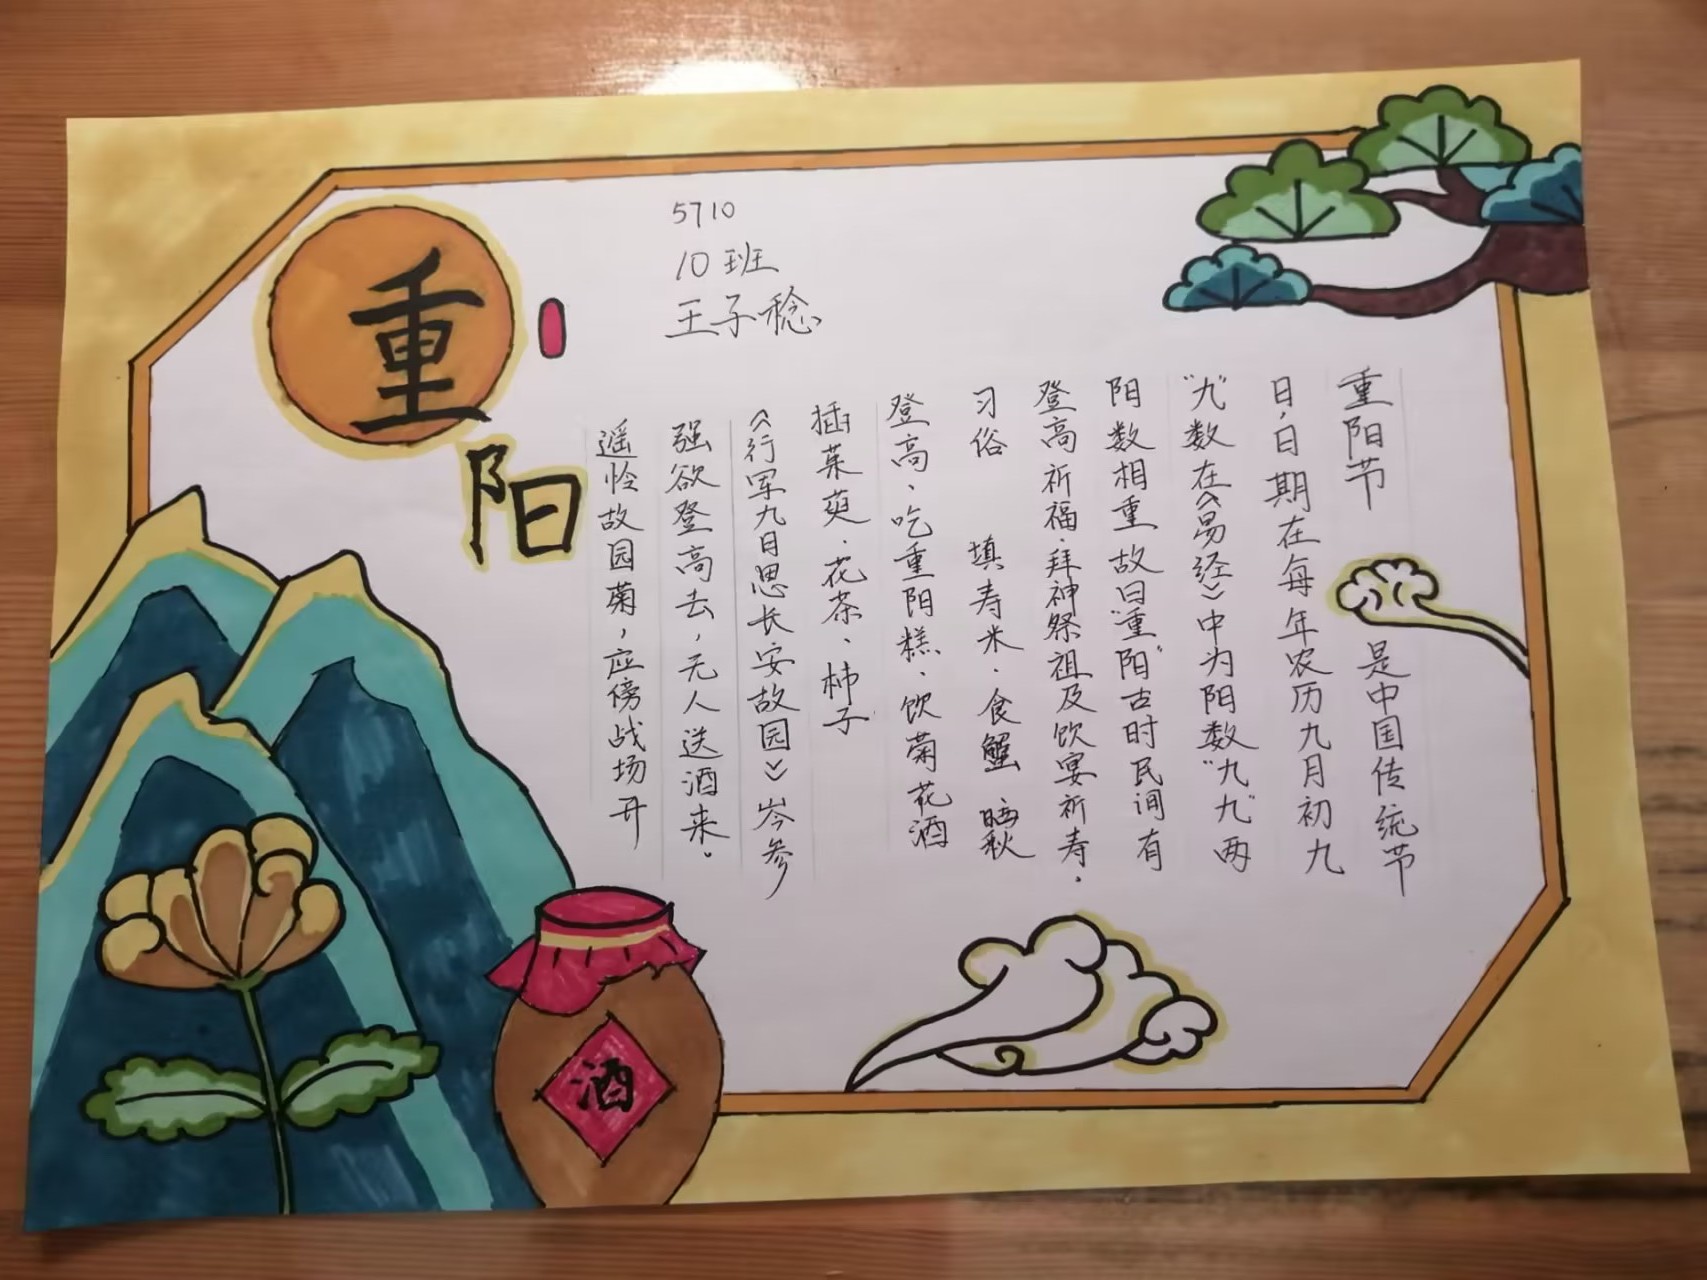 重
阳
5710
10班
王子稔
重阳节 是中国传统节
日，日期在每年农历九月初九
“九”数在《易经》中为阳数“九九”两
阳数相重故曰“重阳”古时民间有
登高祈福、拜神祭祖及饮宴祈寿。
习俗 填寿米、食蟹 晒秋
登高、吃重阳糕、饮菊花酒
插茱萸、花茶、柿子
《行军九日思长安故园》岑参
强欲登高去，无人送酒来。
遥怜故园菊，应傍战场开
酒